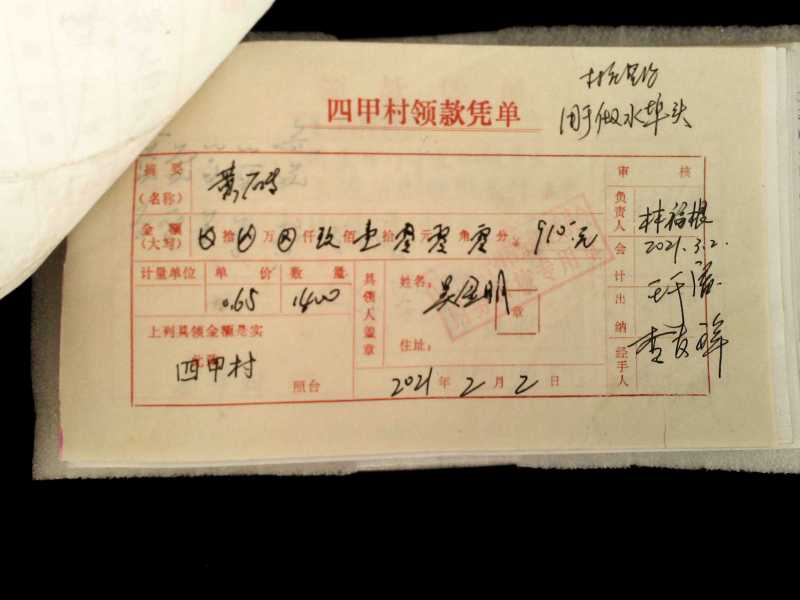 四甲村领款凭单
用于做水埠头
摘要
(名称)
黄石砖
审核
金额
(大写)
拾 万 仟 玖 佰 壹 拾 零 元 零 角 零 分 910元
计量单位 单价 数量
0.65 1400
上列具领金额是实
此致
四甲村
照台
具领人盖章
姓名:
章
住址:
2021年2月2日
负责人
林福根
2021.3.2.
会计
出纳
经手人